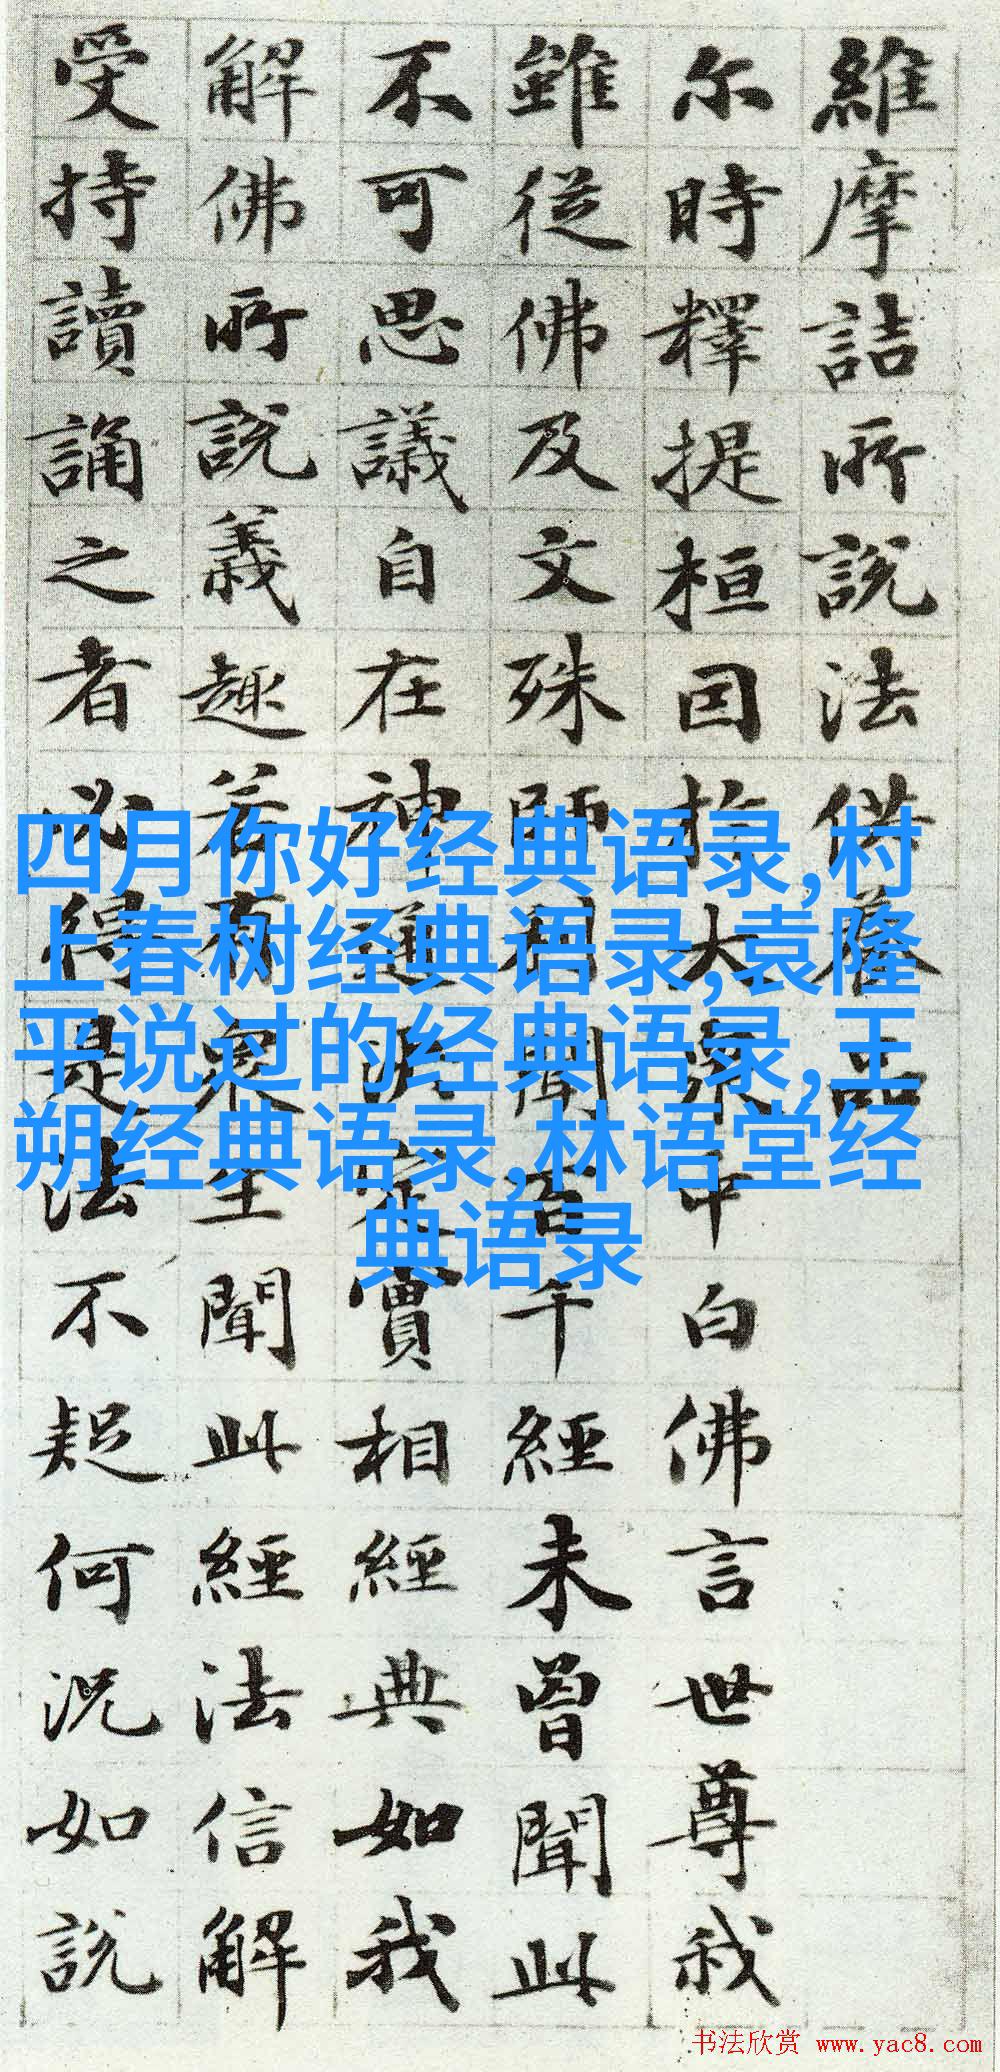 維摩詰所說法供養品
尔時釋提桓因於大眾中白佛言世尊我
雖從佛及文殊師利聞百千經未曾聞此
不可思議自在神通決定實相經典如我
解佛所說義趣若有眾生聞此經法信解
受持讀誦之者必得是法不疑何況如說
四月你好经典语录,村
上春树经典语录,袁隆
平说过的经典语录,王
朔经典语录,林语堂经
典语录
书法欣赏 www.yac8.com